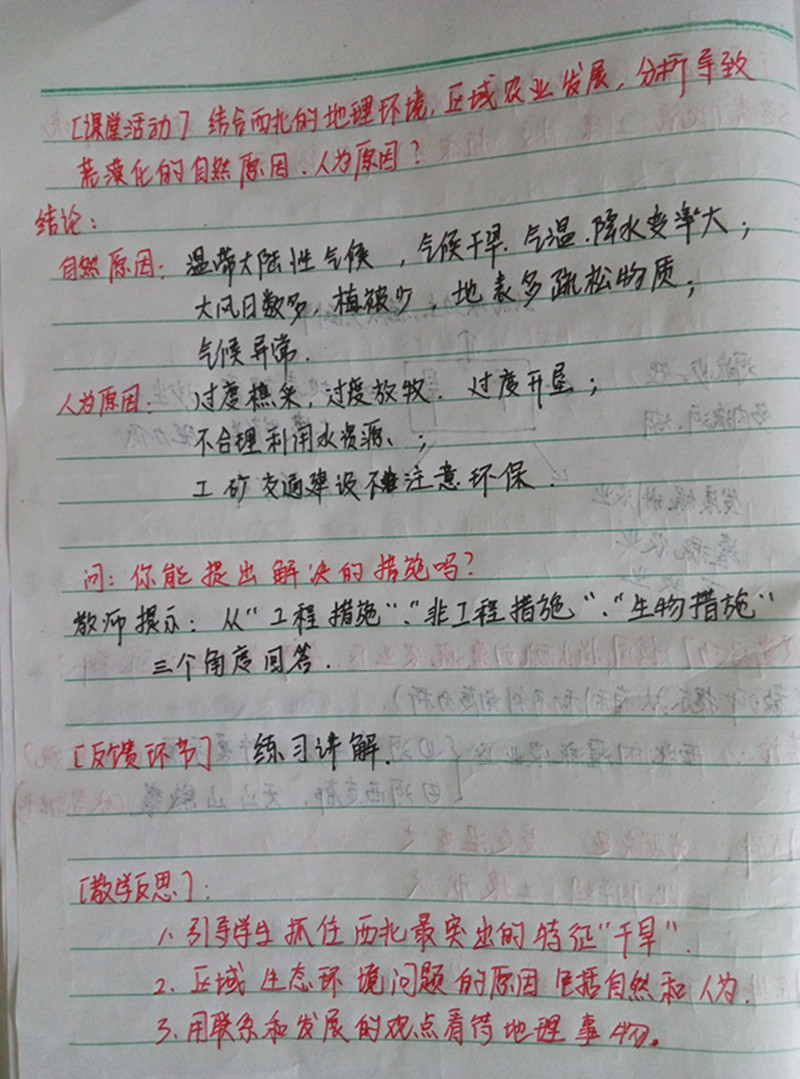 [课堂活动] 结合西北的地理环境,区域农业发展,分析导致
荒漠化的自然原因.人为原因?
结论:
自然原因: 温带大陆性气候,气候干旱.气温.降水变率大;
大风日数多,植被少,地表多疏松物质;
气候异常.
人为原因: 过度樵采,过度放牧.过度开垦;
不合理利用水资源、;
工矿交通建设不注意环保.
问:你能提出解决的措施吗?
教师提示: 从"工程措施"、"非工程措施"、"生物措施"
三个角度回答.
[反馈环节] 练习讲解.
[教学反思]:
1.引导学生抓住西北最突出的特征"干旱".
2.区域生态环境问题的原因包括自然和人为.
3.用联系和发展的观点看待地理事物。